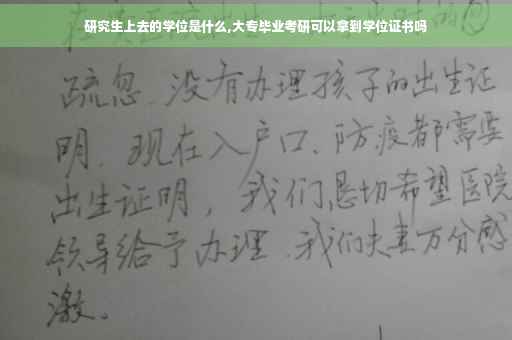 研究生上去的学位是什么,大专毕业考研可以拿到学位证书吗
疏忽.没有办理孩子的出生证
明.现在入户口、防疫都需要
出生证明，我们恳切希望医院
领导给予办理.我们夫妻万分感
激。